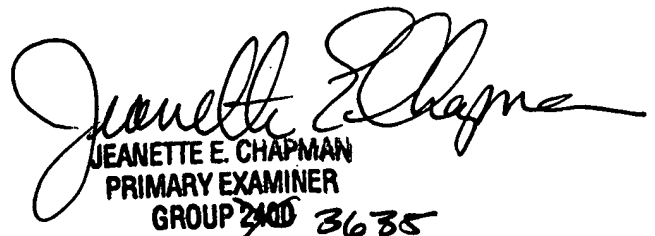 Jeanette E. Chapman
JEANETTE E. CHAPMAN
PRIMARY EXAMINER
GROUP 2400 3635